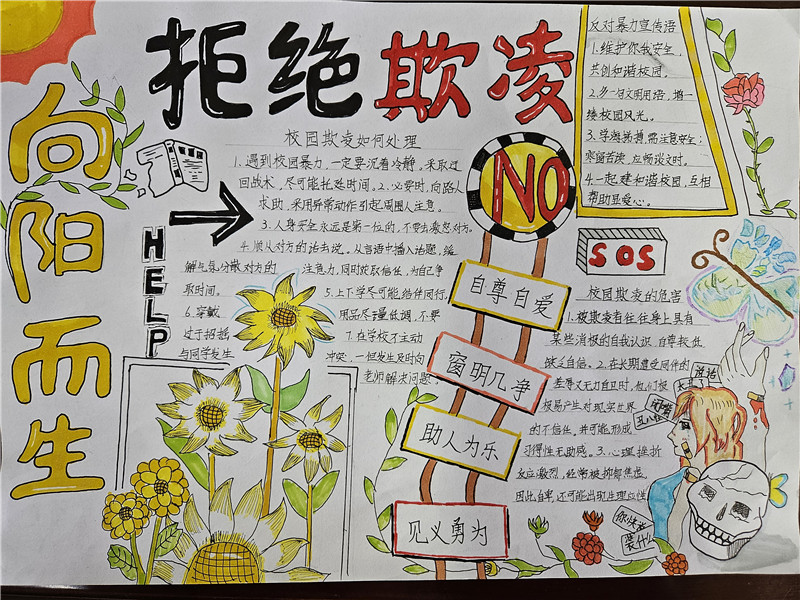 拒绝欺凌
向阳而生
HELP
NO
SOS
校园欺凌如何处理
1.遇到校园暴力,一定要沉着冷静。采取迂
回战术,尽可能拖延时间。2.必要时,向路人
求助,采用异常动作引起周围人注意。
3.人身安全永远是第一位的,不要去激怒对方。
4.顺从对方的话去说。从言语中插入话题,缓
解气氛,分散对方的注意力,同时获取信任,为自己争
取时间。5.上下学尽可能结伴同行。
6.穿戴用品尽量低调,不要
过于招摇 7.在学校不主动
与同学发生冲突,一但发生及时向
老师解决问题。
反对暴力宣传语
1.维护你我安全,
共创和谐校园。
2.多一句文明用语,增一
缕校园风光。
3.需注意安全;
4.一起建和谐校园,互相
帮助显爱心。
自尊自爱
窗明几净
助人为乐
见义勇为
校园欺凌的危害
1.被欺凌者往往身上具有
某些消极的自我认识,自尊较低
缺乏自信。2.在长期遭受同伴的
羞辱又无力自卫时,他们很
极易产生对现实世界
的不信任,并可能形成
习得性无助感。3.心理挫折
反应激烈,经常被抑郁焦虑
因此自卑,还可能出现生理应性